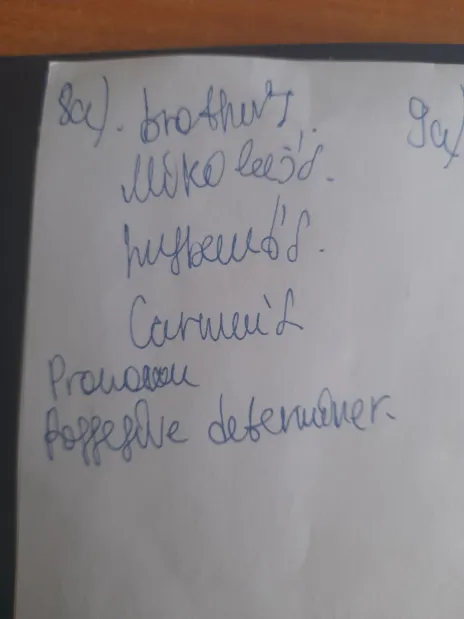 8a). brother's. 9a)
Mikolaj's.
husband's.
Carmen's
Pronoun
Possesive determiner.